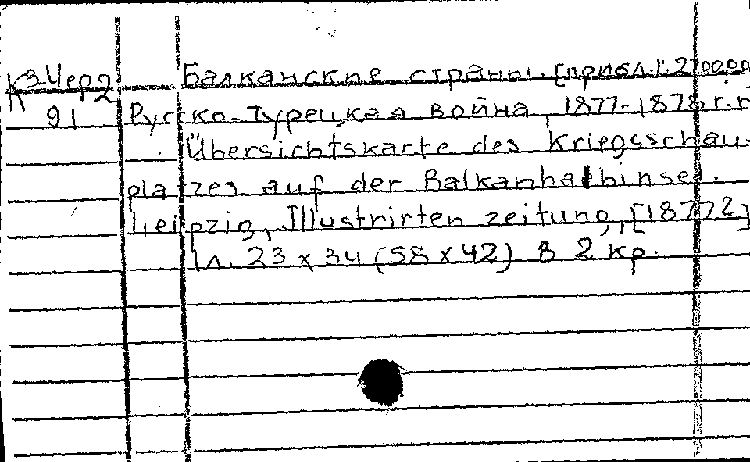 К 3 Чер2 Балканские страны. [прибл. 1:2700000
91 Русско-Турецкая война, 1877-1878 г.г.
Übersichtskarte des Kriegsschau-
platzes auf der Balkanhalbinsel.
Leipzig, Illustrirten zeitung, [1877?]
1л. 23 x 34 (58 x 42) в 2 кр.